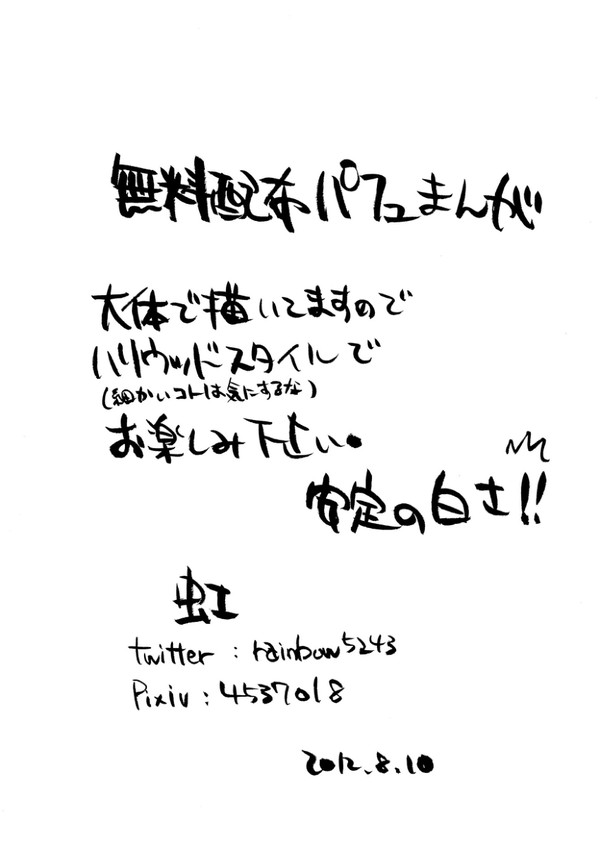 無料配布パフェまんが
大体で描いてますので
ハリウッドスタイルで
(細かいコトは気にするな)
お楽しみ下さい。
安定の白さ!!
虹
twitter : rainbow5243
Pixiv : 4537018
2012.8.10